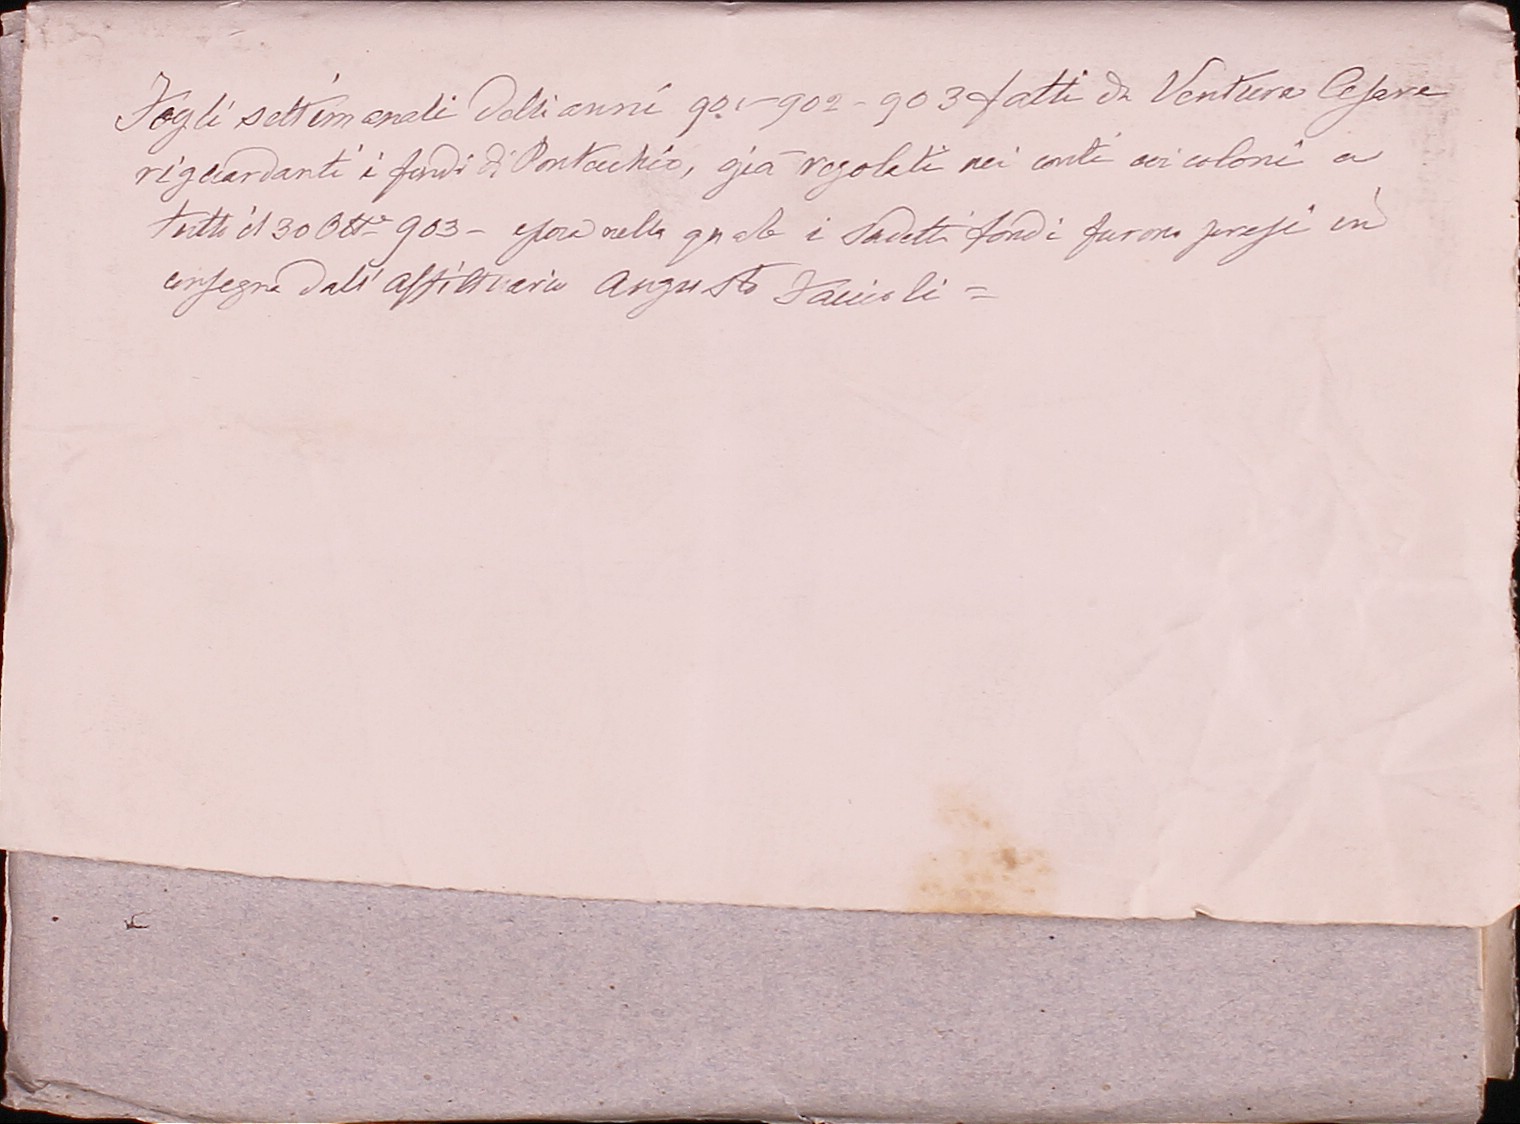 Fogli settimanali delli anni 901-902-903 fatti da Ventura Cesare
riguardanti i fondi di Pontecchio, già regolati nei conti coi coloni a
tutto il 30 Ottre 903 - epoca nella quale i sudetti fondi furono presi in
consegna dall'affittuario Augusto Faccioli =